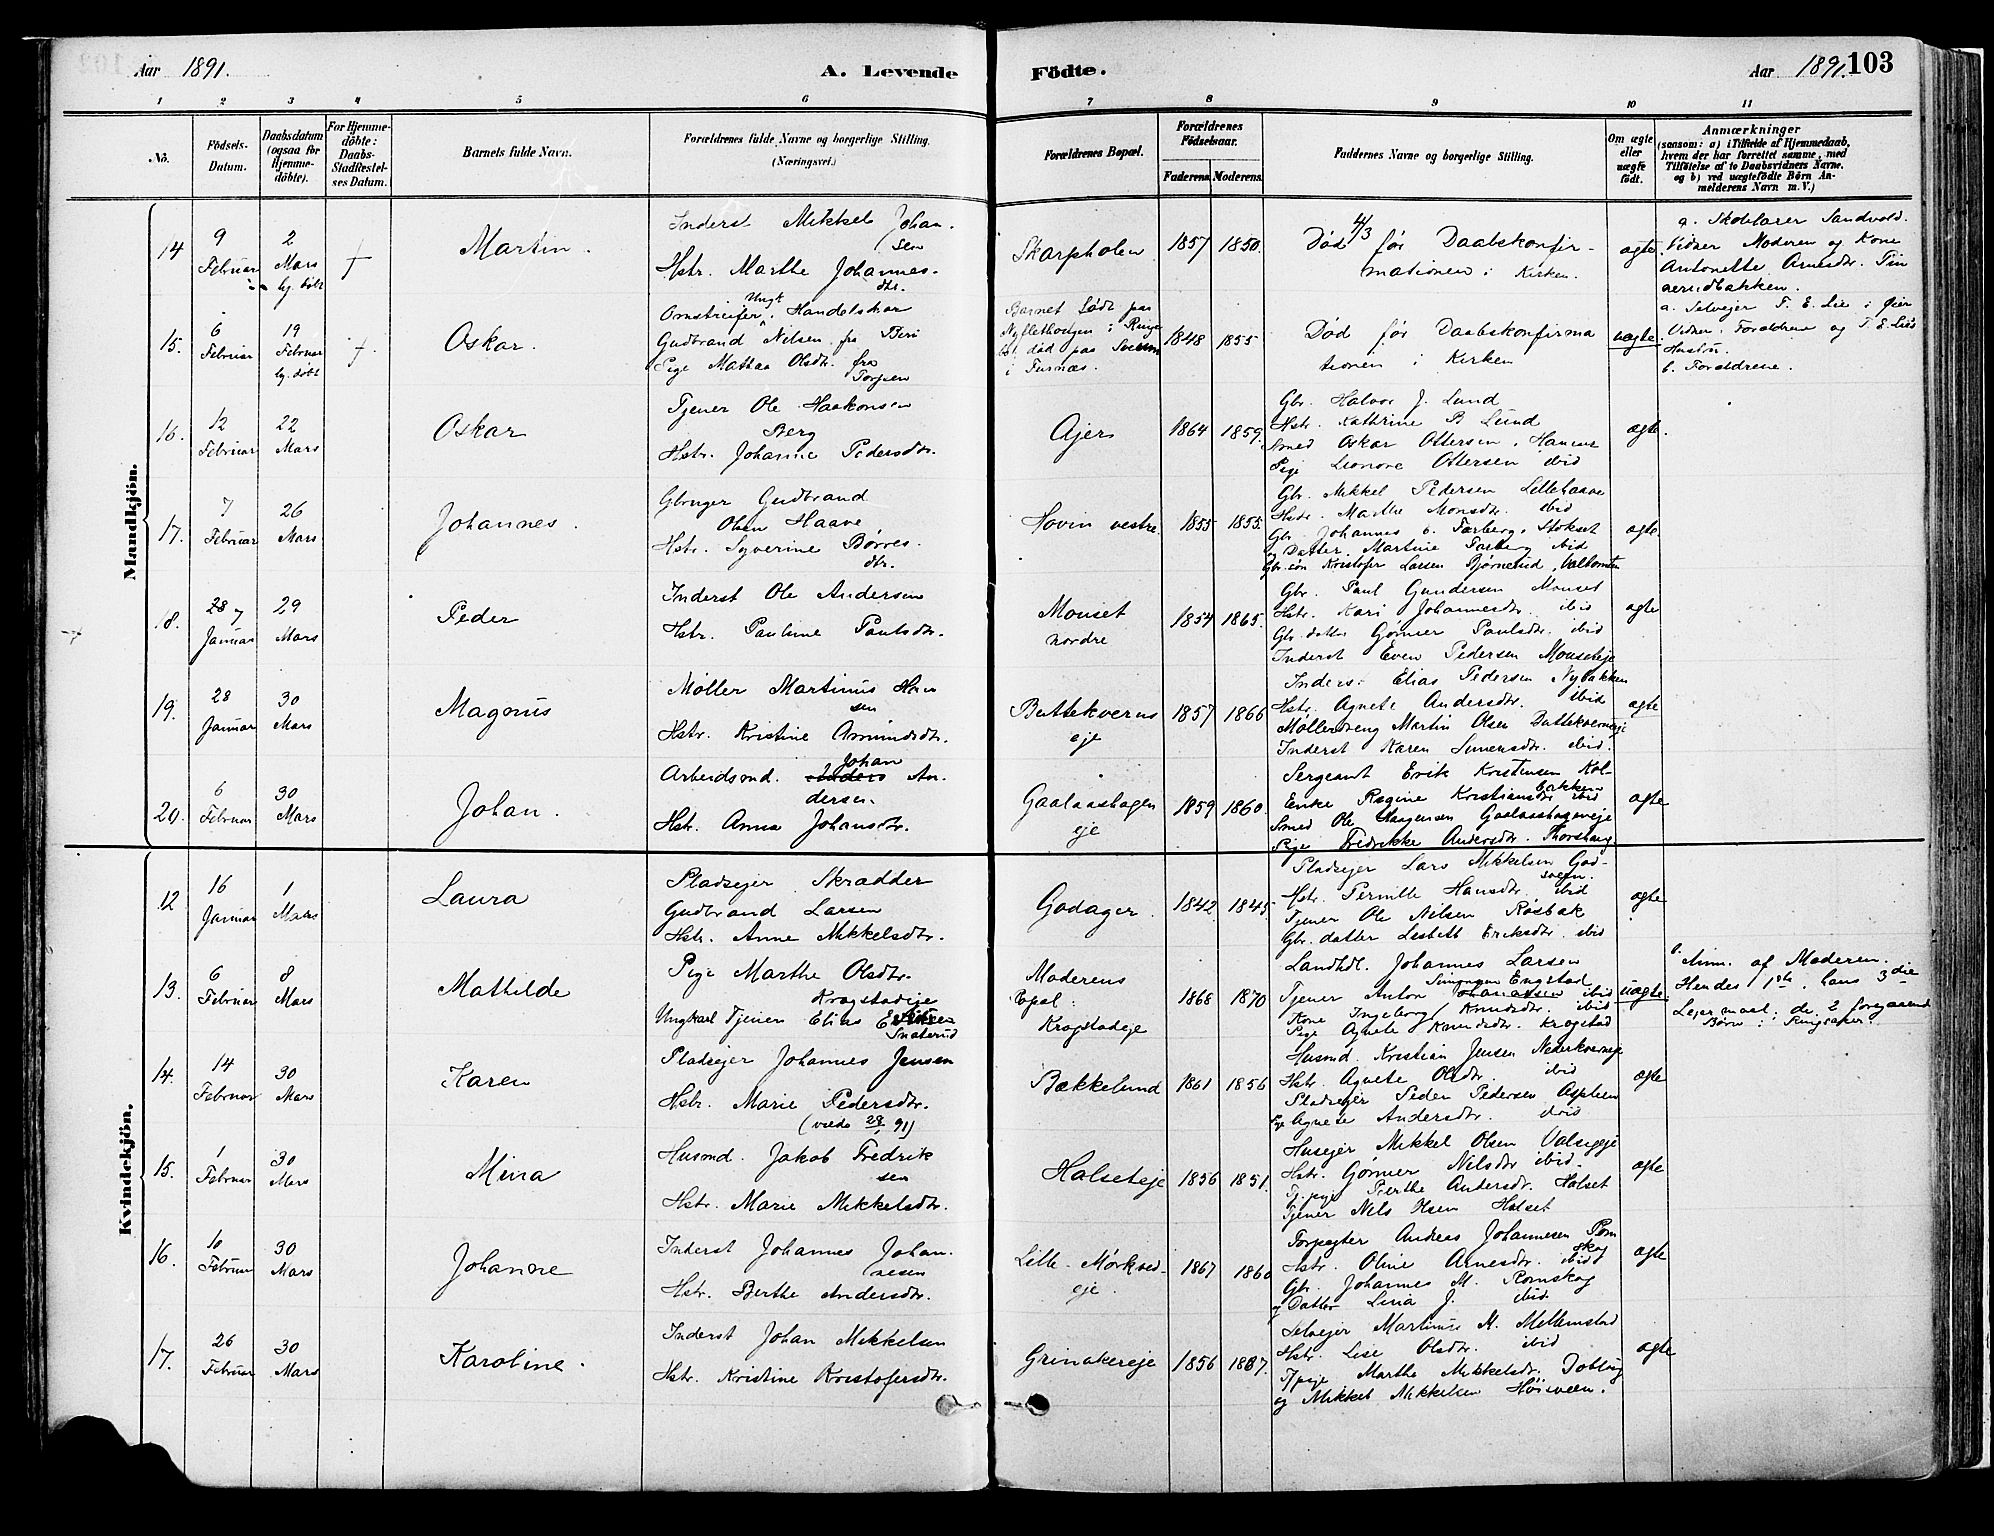 Aar 1891.
A. Levende Fødte.
Aar 1891.
103
1 2 3 4 5 6 7 8 9 10 11
No.
Födsels-Datum.
Daabsdatum (ogsaa for Hjemmedöbte).
For Hjemmedöbte: Daabs-Stadfæstelses Datum.
Barnets fulde Navn.
Forældrenes fulde Navne og borgerlige Stilling. (Næringsvei.)
Forældrenes Bopæl.
Forældrenes Födselsaar.
Faderens. Moderens.
Faddernes Navne og borgerlige Stilling.
Om ægte eller uægte født.
Anmærkninger
(saasom: a) i Tilfælde af Hjemmedaab, hvem der har forrettet samme, med Tilføielse af to Daabsvidners Navne, og b) ved uægtefødte Børn Anmelderens Navn m. V.)
Mandkjön.
14
9 Februar
2 Mars hj. döbt
†
Martin.
Inderst Mikkel Johan-
sen
Hstr. Marthe Johannes-
dtr.
Skarpholen
1857 1850.
Død 4/3 før Daabskonfir-
mationen i Kirken.
ægte
a. Skolelærer Sandvold.
Vidner Moderen og Kone
Antonette Arnesdtr.
15.
6 Februar
19 Februar hj. döbt
†.
Oskar.
Omstreifer, Ungk. Handelskar
Gudbrand Nilsen fra Beri
Pige Mathea Olsdtr. fra
Torpen
Barnet født paa
i Rings.
død paa
i Furnæs.
1848 1855
Død før Daabskonfirma
tionen i Kirken
uægte
a. Selveier T. E. Lie i Øier
Vidner. Forældrene og T. E. Lie's
Hustru.
b. Forældrene.
16.
12 Februar
22 Mars
Oskar
Tjener Ole Haakonsen
Berg
Hstr. Johanne Pedersdtr.
Ajer
1864 1859.
Gbr. Halvor J. Lund
Hstr. Kathrine B Lund
Smed Oskar Ottersen, Hamar
Pige Leonore Ottersen ibid
ægte.
17.
7 Februar
26 Mars
Johannes.
Gbruger Gudbrand
Olsen Haave
Hstr. Syverine Børres-
dtr.
Hovin vestre
1855 1855.
Gbr. Mikkel Pedersen Lillehaave
Hstr. Marthe Monsdtr. ibid
Gbr. Johannes C. Farberg, Stokset
og Datter. Martine Farberg ibid
Gbr. søn Kristofer Larsen Bjørnerud,
ægte
18.
28 7 Januar
29 Mars
Peder
Inderst Ole Andersen
Hstr. Pauline Paulsdtr.
Monset
nordre
1854 1865.
Gbr. Paul Gundersen Monset
Hstr. Kari Johannesdtr. ibid
Gbr. datter Gønner Paulsdtr. ibid
Inderst Even Pedersen Monseteje
ægte
19.
28 Januar
30 Mars
Magnus
Møller Martinus Han
sen
Hstr. Kristine Amundsdtr.
Buttekverns
eje
1857 1866
Inders: Elias Pedersen Nybakken
Hstr. Agnete Andersdtr. ibid
Møllerdreng Martin Olsen Buttekverneje
Inderst Karen Simensdtr. ibid.
ægte
20.
6 Februar
30 Mars
Johan.
Arbeidsmd. Johan An-
dersen.
Hstr. Anna Johansdtr.
Gaalaashagen
eje
1859 1860.
Sergeant Erik Kristensen Kol-
bakken
Enke Regine Kristiansdtr ibid
Smed Ole Gaalaashageneje
Pige Fredrikke Andersdtr. Thorshaug
ægte
Kvindekjön.
12
16 Januar
1 Mars
Laura
Pladsejer Skrædder
Gudbrand Larsen
Hstr. Anne Mikkelsdtr.
Godager.
1842 1845
Pladsejer Lars Mikkelsen God-
sveen.
Hstr. Pernille Hansdtr. ibid
Tjener Ole Nilsen Røsbak
Gbr. datter Lisbett Eriksdtr. ibid
ægte
13.
6 Februar
8 Mars
Mathilde
Pige Marthe Olsdtr.
Kragstadeje
Ungkarl Tjener Elias
Snaterud
Moderens
Bopæl:
Kragstadeje
1868 1870
Landhdl. Johannes Larsen
Engstad
Tjener Anton Simonsen ibid
Kone Ingeborg Knudsdtr. ibid
Pige Agnete Knudsdtr. Kragstad
uægte
b. Anm. af Moderen.
Hendes 1ste, hans 3die
Leiermaal; de 2 foregaaende
Børn i Ringsaker.
14.
14 Februar
30 Mars
Karen
Pladsejer Johannes Jensen
Hstr. Marie Pedersdtr.
Bækkelund
1861 1856
Husmd. Kristian Jensen Nederkverneje
Hstr. Agnete Olsdtr. ibid
Pladsejer Peder Pedersen Aspheen
Pige Agnete Andersdtr. ibid
ægte
15.
1 Februar
30 Mars
Mina
Husmd. Jakob Fredrik
sen
Hstr. Marie Mikkelsdtr.
Halseteje
1856 1851.
Husejer Mikkel Olsen
Hstr. Gønner Nilsdtr ibid.
Tj.pige Berthe Andersdtr. Halset
Tjener Nils Olsen Halset
ægte
16.
10 Februar
30 Mars
Johanne
Inderst Johannes Johan-
nesen
Hstr. Berthe Andersdtr.
Lille-Mørkved-
eje.
1867 1860
Forpagter Andreas Johannesen Rom
skog
Hstr. Oline Arnesdtr. ibid
Gbr. Johannes M. Romskog
og Datter Lina J. ibid.
ægte
17.
26 Februar
30 Mars
Karoline.
Inderst Johan Mikkelsen
Hstr. Kristine Kristofersdtr.
Grinakereje
1856 1887.
Selvejer Martinus M. Mellemstad
Hstr. Lise Olsdtr. ibid
Tjpige Marthe Mikkelsdtr.
og Mikkel Mikkelsen Høiveen.
ægte